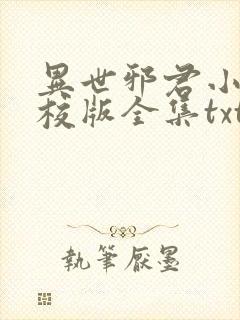 異世邪君小
校版全集txt
執筆厭墨